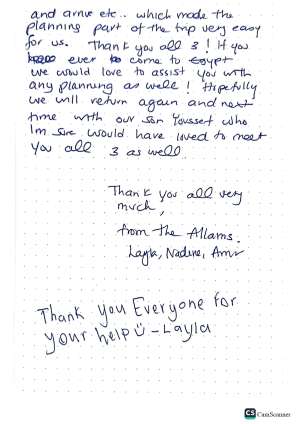 and arrive etc.. which made the
planning part of the trip very easy
for us. Thank you all 3! If you
ever to come to Egypt
we would love to assist you with
any planning as well! Hopefully
we will return again and next
time with our son Youssef who
Im sure would have loved to meet
you all 3 as well.
Thank you all very
much,
from the Allams.
Layla, Nadine, Amr
Thank you Everyone for
your help Ü - Layla
CS CamScanner